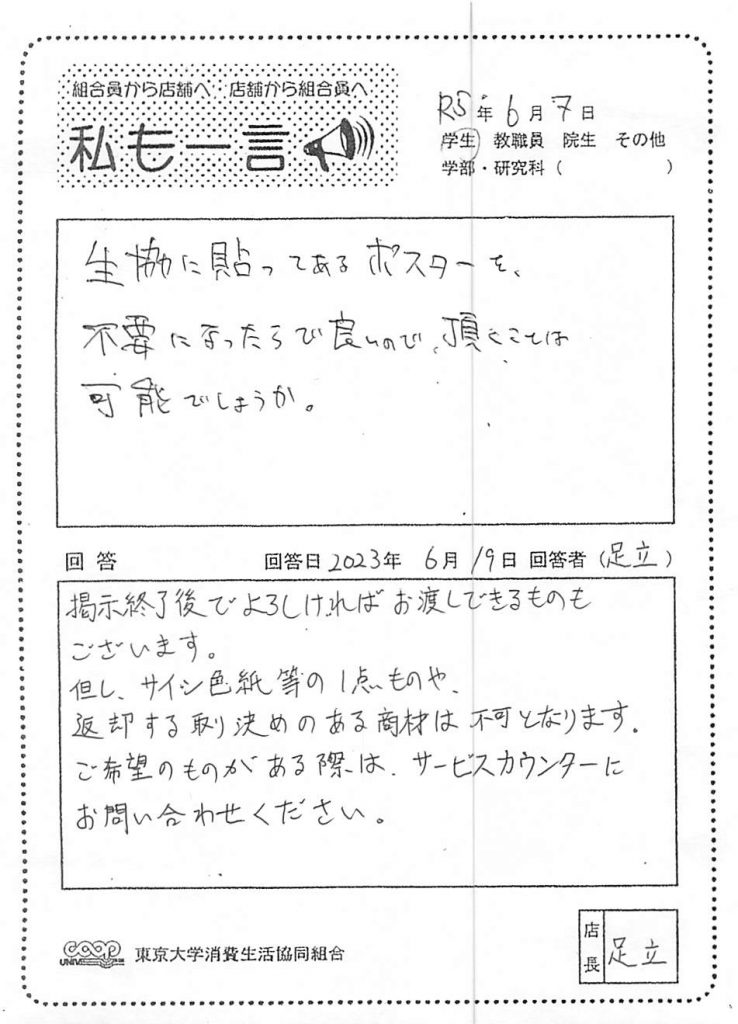 組合員から店舗へ・店舗から組合員へ
私も一言
R5年6月7日
学生 教職員 院生 その他
学部・研究科（ ）
生協に貼ってあるポスターを、
不要になったらで良いので、頂くことは
可能でしょうか。
回答 回答日2023年 6月19日 回答者（足立）
掲示終了後でよろしければお渡しできるものも
ございます。
但し、サイン色紙等の1点ものや、
返却する取り決めのある商材は不可となります。
ご希望のものがある際は、サービスカウンターに
お問い合わせください。
coop
UNIV
東京大学消費生活協同組合
店長 足立